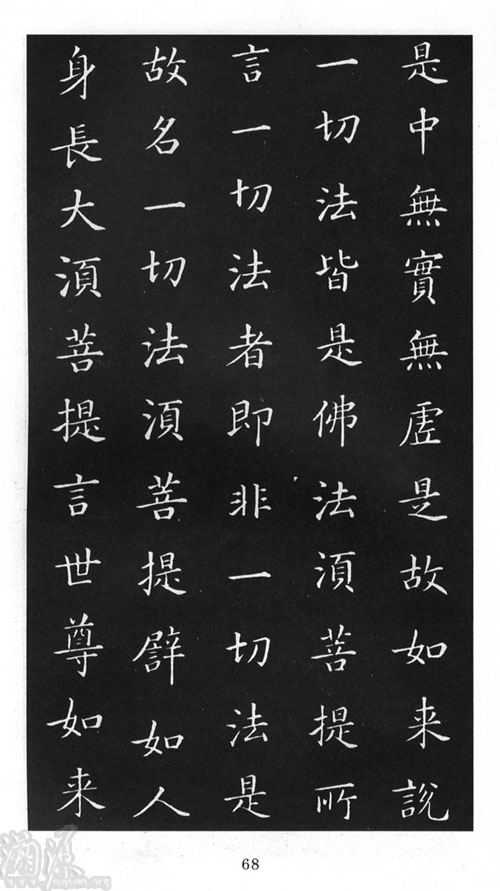 是中無實無虛是故如来說
一切法皆是佛法湏菩提所
言一切法者即非一切法是
故名一切法湏菩提譬如人
身長大湏菩提言世尊如来
68
溯源
suyuan.org